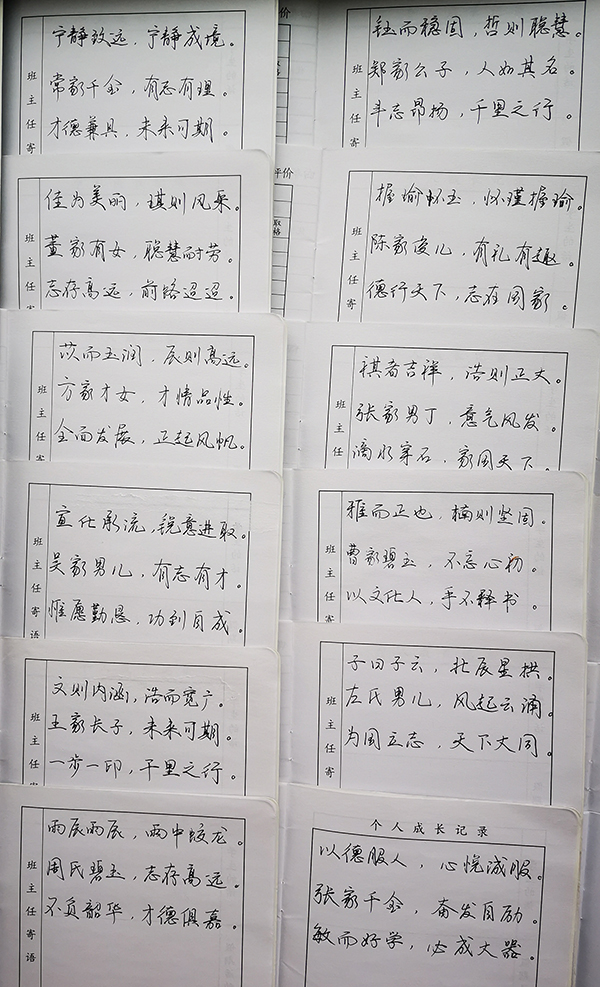 宁静致远，宁静成境。
常家千金，有志有理。
才德兼具，未来可期。
班主任寄
价
佳为美丽，琪则风采。
董家有女，聪慧耐劳。
志存高远，前路迢迢。
班主任寄
评价
苡而玉润，辰则高远。
方家才女，才情品性。
全面发展，正起风帆。
班主任寄
宣化承流，锐意进取。
吴家男儿，有志有才。
惟愿勤恳，功到自成。
班主任寄语
文则内涵，浩而宽广。
王家长子，未来可期。
一步一印，千里之行。
班主任寄
雨辰雨辰，雨中蛟龙。
周氏碧玉，志存高远。
不负韶华，才德俱嘉。
班主任寄语
钰而稳固，哲则聪慧。
郑家公子，人如其名。
斗志昂扬，千里之行。
班主任寄
握瑜怀玉，怀瑾握瑜。
陈家俊儿，有礼有趣。
德行天下，志在国家。
班主任寄
祺者吉祥，浩则正大。
张家男丁，意气风发。
滴水穿石，家国天下。
班主任
雅而正也，楠则坚固。
曹家碧玉，不忘心初。
以文化人，手不释书。
班主任寄
子曰子云，北辰星拱。
左氏男儿，风起云涌。
为国立志，天下大同。
班主任寄
个人成长记录
以德服人，心悦诚服。
张家千金，奋发自励。
敏而好学，必成大器。